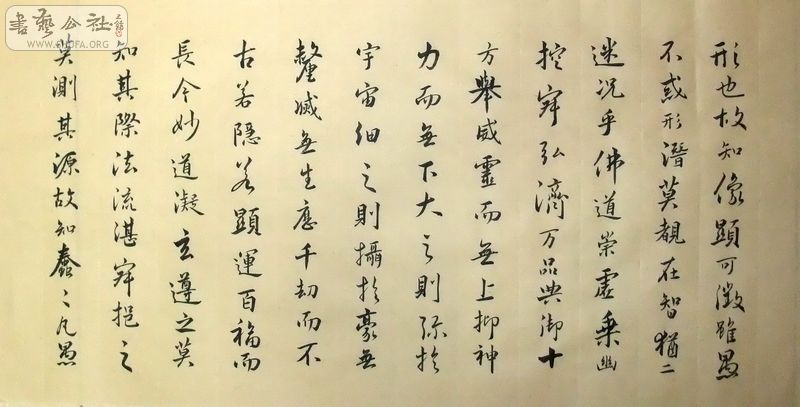 形也故知像顯可徵雖愚
不惑形潛莫覩在智猶二
迷況乎佛道崇虛乘幽
控寂弘濟万品典御十
方舉威靈而無上抑神
力而無下大之則弥於
宇宙細之則攝於豪無
釐滅無生應千劫而不
古若隱若顯運百福而
長今妙道凝玄遵之莫
知其際法流湛寂挹之
莫測其源故知蠢〻凡愚
書藝公社
WWW.SHUFA.ORG